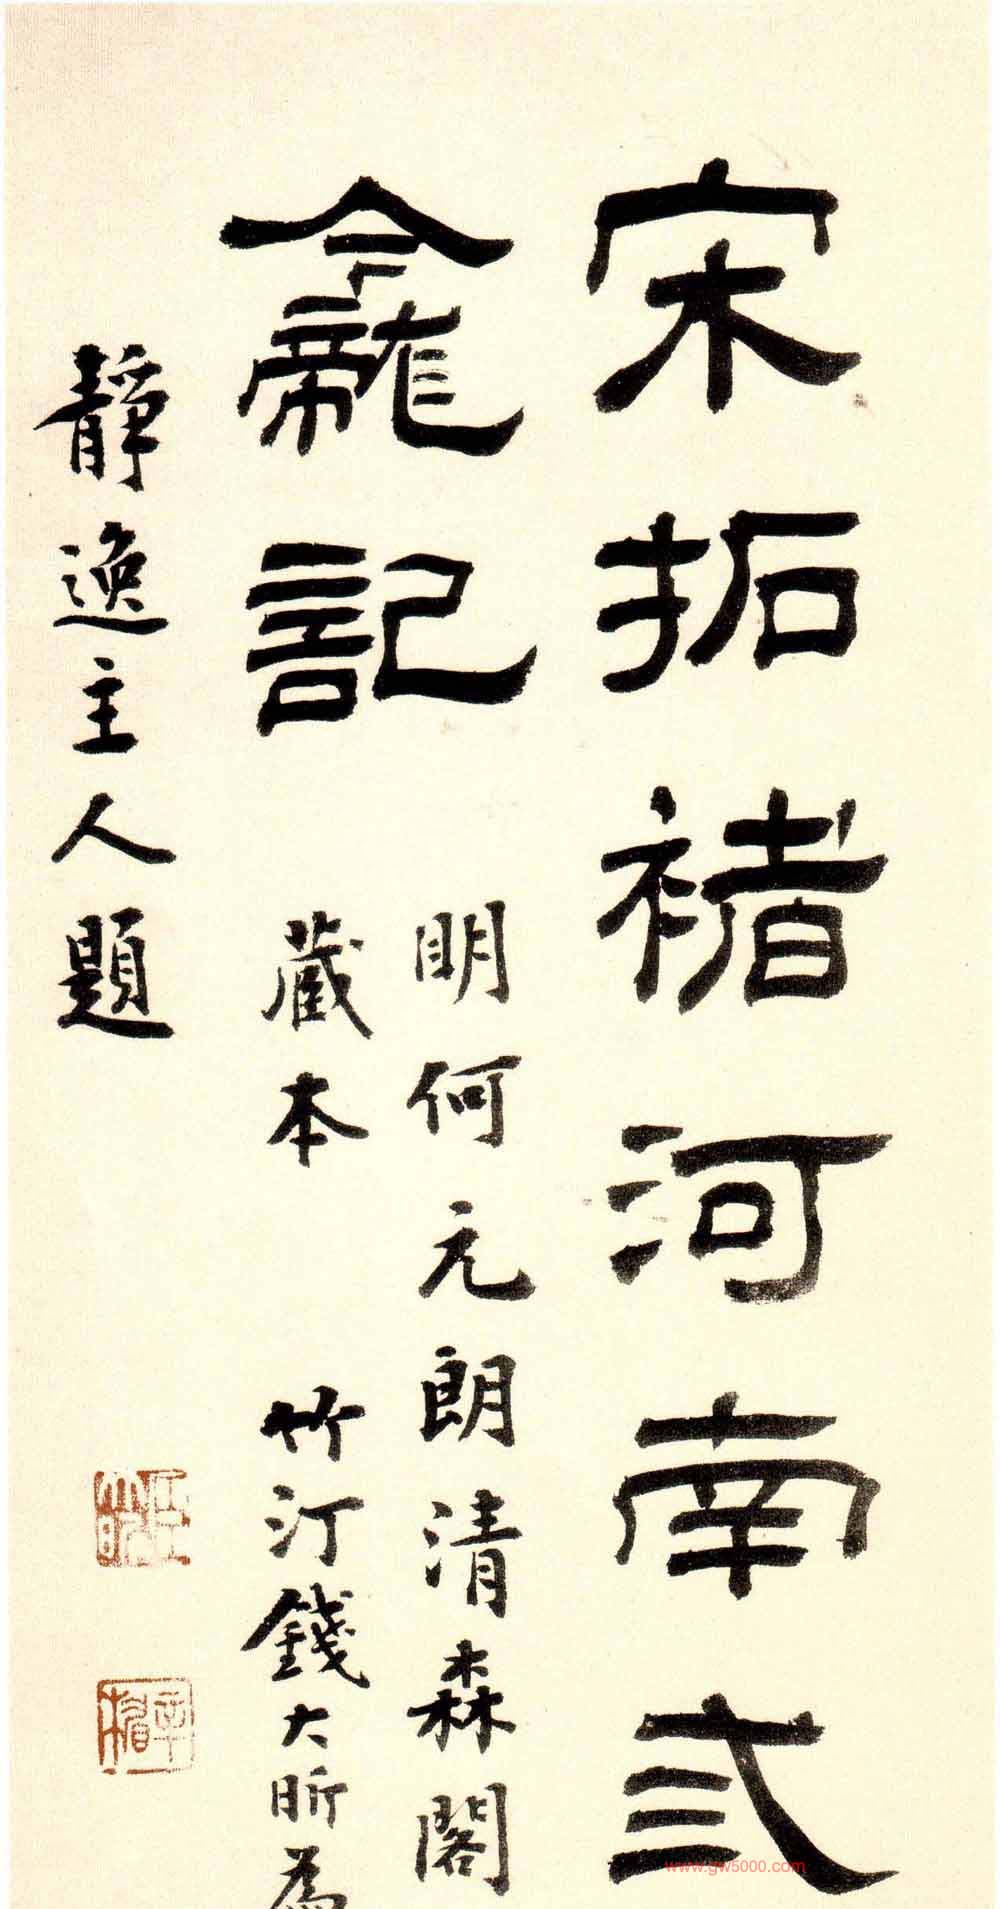 宋拓褚河南弎
龕記
明何元朗清森閣
藏本
竹汀錢大昕為
靜逸主人題
臣大昕
辛楣
www.gw5000.com